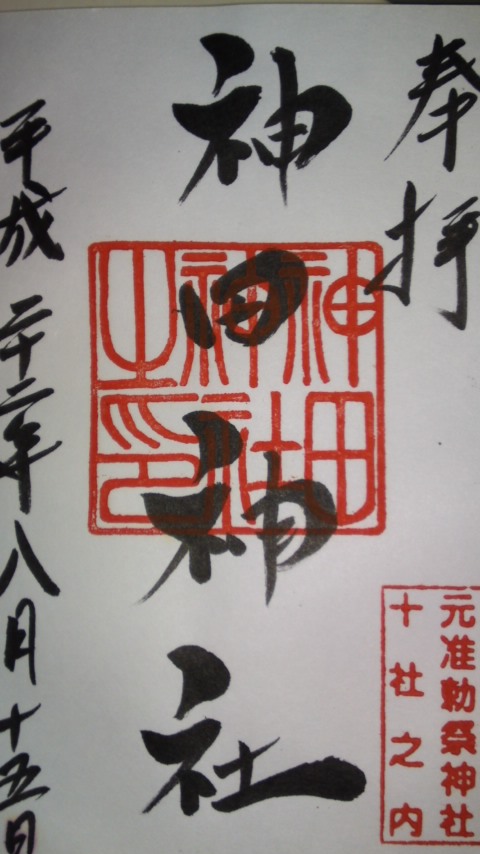 奉拝
元准勅祭神社
十社之内
神田神社
神田
神社
之印
平成二十二年八月十五日